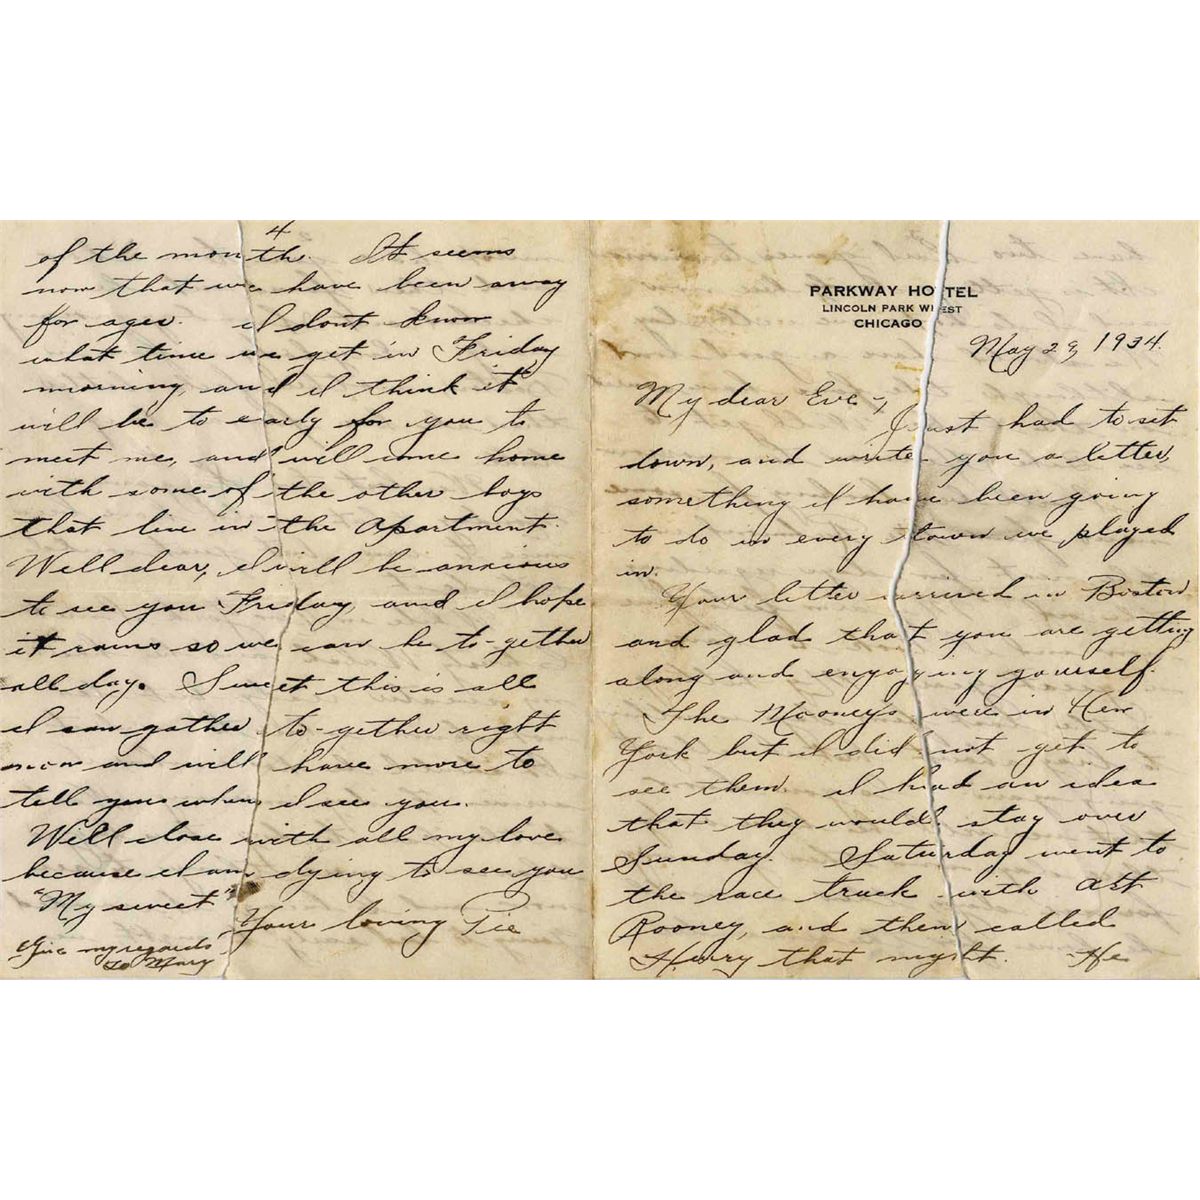 4
of the month. It seems
now that we have been away
for ages. I dont know
what time we get in Friday
morning, and I think it
will be to early for you to
meet me, and will come home
with some of the other boys
that live in the apartment.
Well dear, I will be anxious
to see you Friday, and I hope
it rains so we can be to-gether
all day. Sweet this is all
I can gather to-gether right
now and will have more to
tell you when I see you.
Will close with all my love
because I am dying to see you
"My sweet"
Your loving Pie
Give my regards
to Mary
PARKWAY HOTEL
LINCOLN PARK WEST
CHICAGO
May 29, 1934.
My dear Eve -,
Just had to sit
down, and write you a letter,
something I have been going
to do in every town we played
in.
Your letter arrived in Boston
and glad that you are getting
along and engoying yourself.
The Mooneys were in New
York but I did not get to
see them. I had an idea
that they would stay over
Sunday. Saturday went to
the race track with Art
Rooney, and then called
Harry that night. He